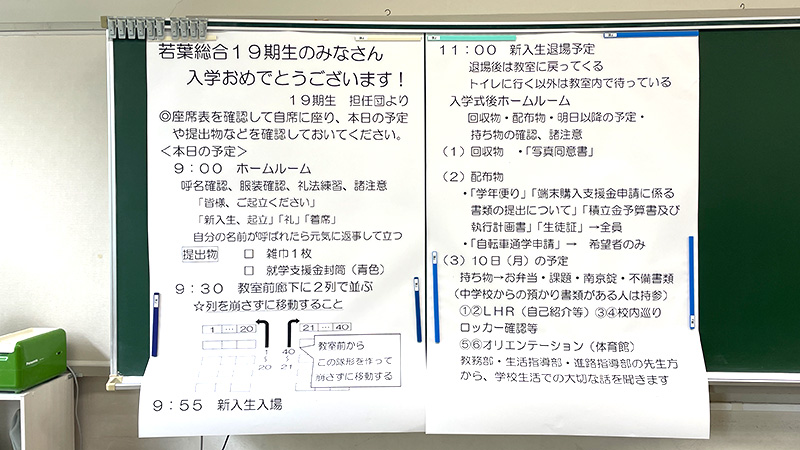 若葉総合19期生のみなさん
入学おめでとうございます!
19期生 担任団より
◎座席表を確認して自席に座り、本日の予定
や提出物などを確認しておいてください。
<本日の予定>
9:00 ホームルーム
呼名確認、服装確認、礼法練習、諸注意
「皆様、ご起立ください」
「新入生、起立」「礼」「着席」
自分の名前が呼ばれたら元気に返事して立つ
提出物 □ 雑巾1枚
□ 就学支援金封筒(青色)
9:30 教室前廊下に2列で並ぶ
☆列を崩さずに移動すること
1 … 20 21 … 40
1 40
~ ~
20 21
教室前から
この隊形を作って
崩さずに移動する
9:55 新入生入場
11:00 新入生退場予定
退場後は教室に戻ってくる
トイレに行く以外は教室内で待っている
入学式後ホームルーム
回収物・配布物・明日以降の予定・
持ち物の確認、諸注意
(1)回収物 ・「写真同意書」
(2)配布物
・「学年便り」「端末購入支援金申請に係る
書類の提出について」「積立金予算書及び
執行計画書」「生徒証」→全員
・「自転車通学申請」→ 希望者のみ
(3)10日(月)の予定
持ち物→お弁当・課題・南京錠・不備書類
(中学校からの預かり書類がある人は持参)
①②LHR(自己紹介等)③④校内巡り
ロッカー確認等
⑤⑥オリエンテーション(体育館)
教務部・生活指導部・進路指導部の先生方
から、学校生活での大切な話を聞きます